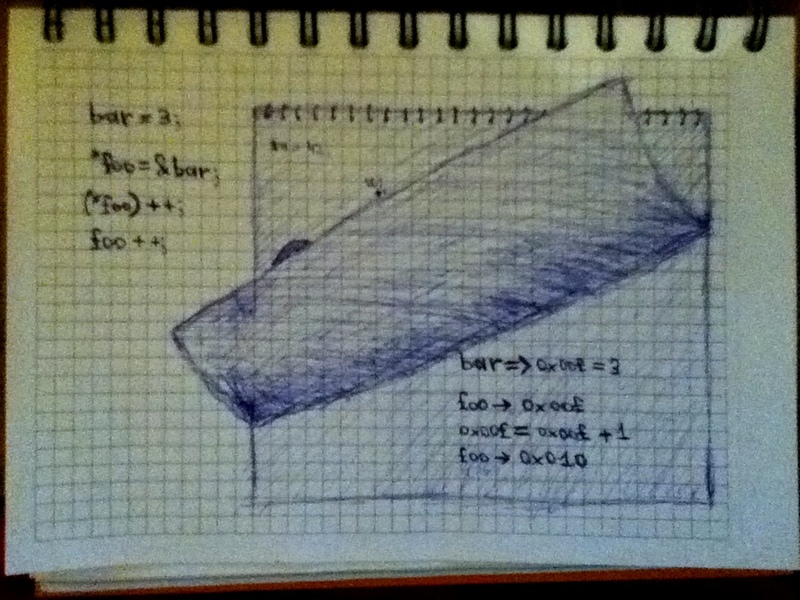 bar = 3;
*foo = &bar;
(*foo) ++;
foo ++;
bar => 0x00f = 3
foo → 0x00f
0x00f = 0x00f + 1
foo → 0x010